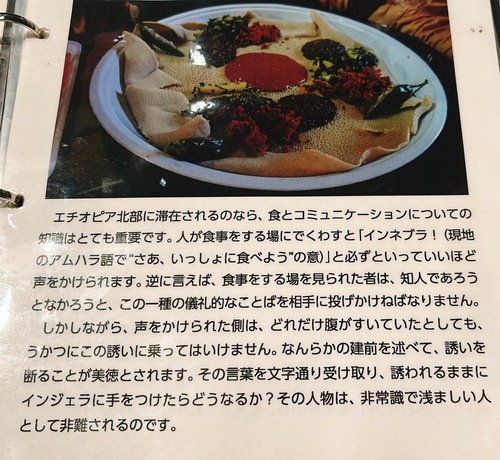 エチオピア北部に滞在されるのなら、食とコミュニケーションについての
知識はとても重要です。人が食事をする場にでくわすと「インネブラ！（現地
のアムハラ語で“さあ、いっしょに食べよう”の意）」と必ずといっていいほど
声をかけられます。逆に言えば、食事をする場を見られた者は、知人であろう
となかろうと、この一種の儀礼的なことばを相手に投げかけねばなりません。
しかしながら、声をかけられた側は、どれだけ腹がすいていたとしても、
うかつにこの誘いに乗ってはいけません。なんらかの建前を述べて、誘いを
断ることが美徳とされます。その言葉を文字通り受け取り、誘われるままに
インジェラに手をつけたらどうなるか？その人物は、非常識で浅ましい人
として非難されるのです。